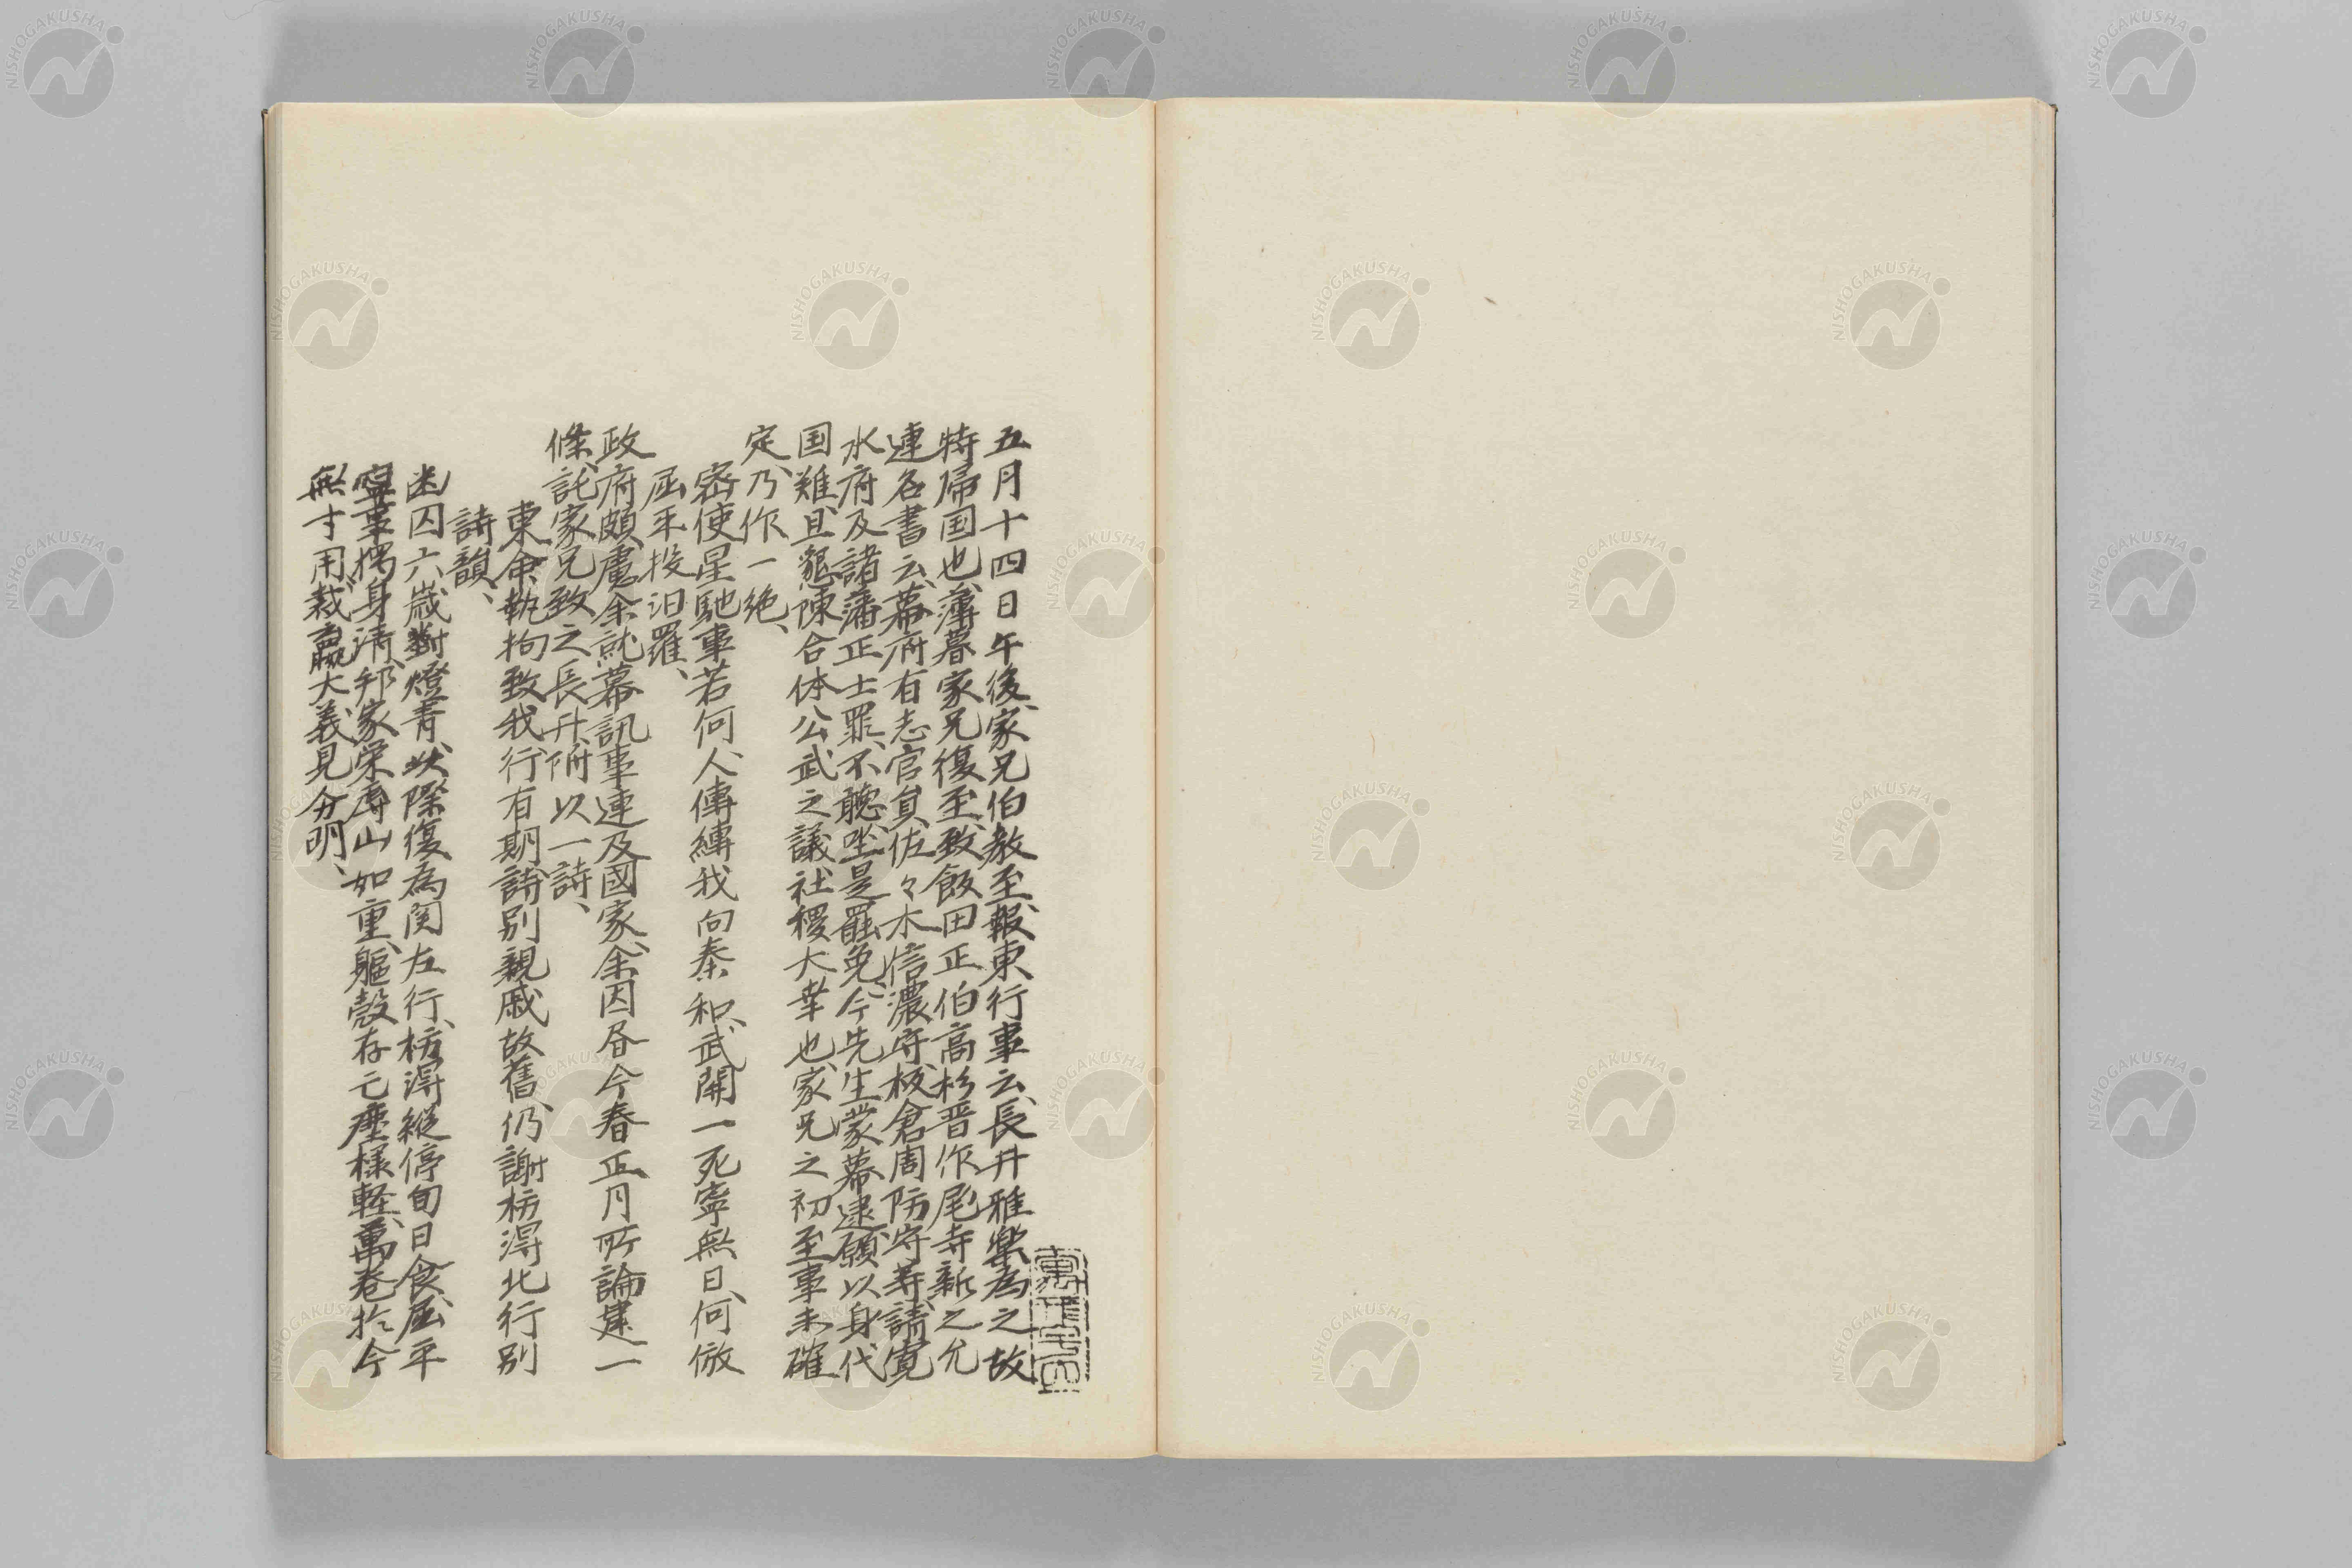 五月十四日午後、家兄伯教至、報東行事云、長井雅樂為之故
特帰国也、薄暮家兄復至、致飯田正伯高杉晋作尾寺新之允
連名書云、幕府有志官員、佐々木信濃守、板倉周防守等、請寛
水府及諸藩正士罪、不聽、坐是罷免、今先生蒙幕逮、願以身代
国難、且懇陳合体公武之議、社稷大幸也、家兄之初至、事未確
定、乃作一絶、
密使星馳事若何、人傳縛我向秦和、武開一死寧無日、何倣
屈平投汨羅、
政府頗慮余就幕訊事連及國家、余因昼今春正月所論建一
條、託家兄致之長井、附以一詩、
東命執拘致我行、有期詩別親戚故舊、仍謝枋得北行別
詩韻、
幽囚六歳對燈青、此際復為関左行、枋得縦停旬日食、屈平
寧事獨身清、邦家栄辱山如重、軀殻存亡塵様軽、萬巻於今
無寸用、裁嬴大義見分明、
NISHOGAKUSHA